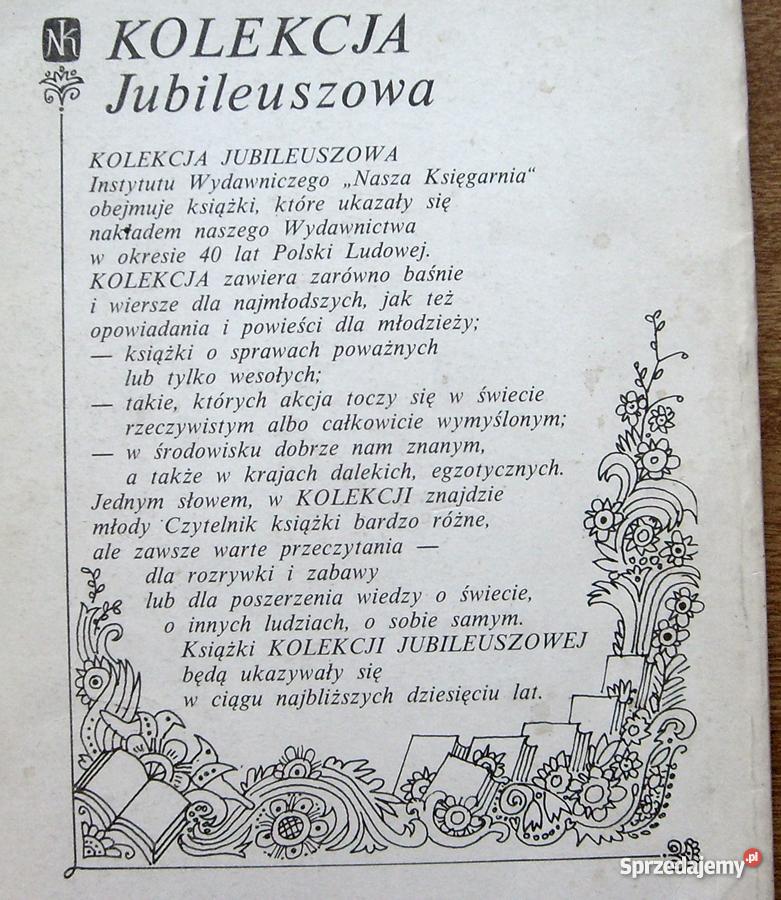 NK
KOLEKCJA
Jubileuszowa
KOLEKCJA JUBILEUSZOWA
Instytutu Wydawniczego „Nasza Księgarnia“
obejmuje książki, które ukazały się
nakładem naszego Wydawnictwa
w okresie 40 lat Polski Ludowej.
KOLEKCJA zawiera zarówno baśnie
i wiersze dla najmłodszych, jak też
opowiadania i powieści dla młodzieży;
— książki o sprawach poważnych
lub tylko wesołych;
— takie, których akcja toczy się w świecie
rzeczywistym albo całkowicie wymyślonym;
— w środowisku dobrze nam znanym,
a także w krajach dalekich, egzotycznych.
Jednym słowem, w KOLEKCJI znajdzie
młody Czytelnik książki bardzo różne,
ale zawsze warte przeczytania —
dla rozrywki i zabawy
lub dla poszerzenia wiedzy o świecie,
o innych ludziach, o sobie samym.
Książki KOLEKCJI JUBILEUSZOWEJ
będą ukazywały się
w ciągu najbliższych dziesięciu lat.
Sprzedajemy.pl